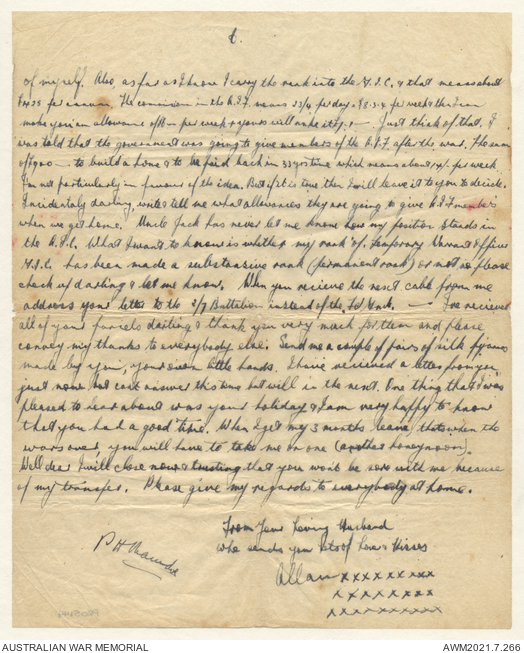 6.
of myself. Also, as far as I know I carry the rank into the A.I.C. & that means about
£425 per annum. The commission in the A.I.F. means 23/4 per day & £8.3.4 per week & then I can
make you an allowance of per week & yours will make it Just think of that. I
was told that the government was going to give members of the A.I.F. after the war. The sum
of £900 to build a home & to be paid back in 33 yrs time which means about 14/- per week.
I'm not particularly in favour of the idea. But if it is true then I will leave it to you to decide.
Incidentaly darling, write & tell me what allowances they are going to give A.I.F. members
when we get home. Uncle Jack has never let me know how my position stands in
the A.I.C. What I want to know is whether my rank of Temporary Warrant Officer
A.I.C. has been made a substansive rank (permanent rank) or not so please
check up darling & let me know. When you recieve the next cable from me
address your letter to the 2/7 Battalion instead of the I've recieved
all of your parcels darling & thank you very much for them and please
convey my thanks to everybody else. Send me a couple of pairs of silk pyjamas
made by your, your own little hands. I have received a letter from you
just now but cant answer this time but will in the next. One thing that I was
pleased to hear about was your holiday & I am very happy to know
that you had a good time. When I get my 3 months leave thats when the
wars over you will have to take me on one (another honeymoon).
Well dear I will close now trusting that you won't be sore with me because
of my transfer. Please give my regards to everybody at home.
From Your Loving Husband
who sends you lots of Love & Kisses
P H
Allan xxxxxxxxx
xxxxxxxx
xxxxxxxxxx
AUSTRALIAN WAR MEMORIAL
AWM2021.7.266